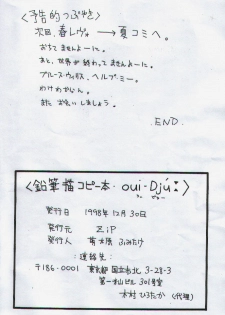 〈予告的つぶやき〉
次回、春レヴォ → 夏コミへ。
おちてませんよーに。
あと、世界が終わってませんよーに。
ブルース・ウィリス、ヘルプ・ミー。
わけわかんない。
また お会いしましょう。
.END.
〈鉛筆描コピー本・oui-Djú:〉
発行日 1998年12月30日
発行元 ZiP
発行人 青木原 ふみたけ
:連絡先:
〒186-0001 東京都国立市北 3-28-3
第一村山ビル 301号室
木村 ひろたか (代理)